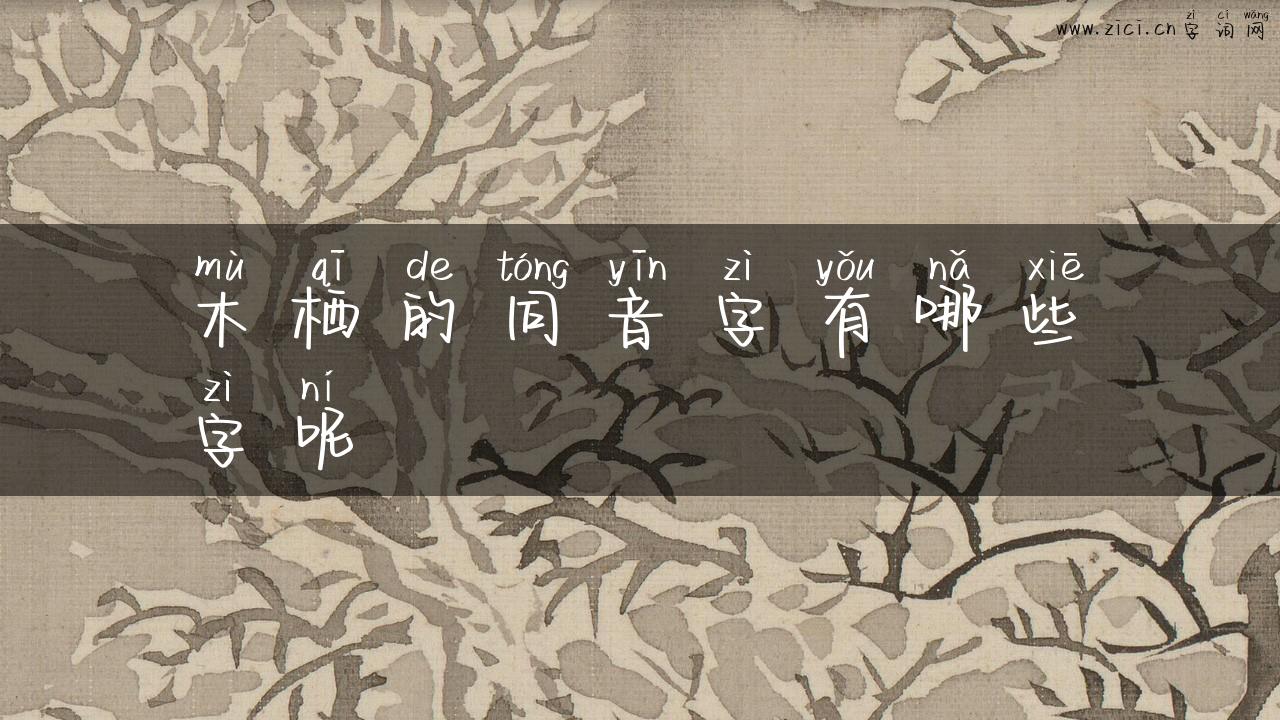 zì cí wǎng
www.zici.cn字词网
mù qī de tóng yīn zì yǒu nǎ xiē
木栖的同音字有哪些
zì ní
字呢